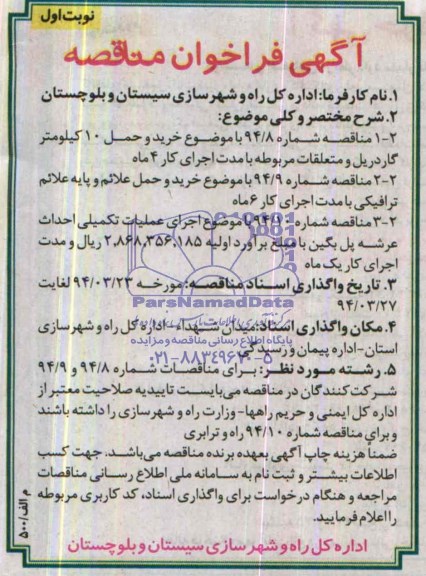 نوبت اول
آگهی فراخوان مناقصه
۱. نام کارفرما: اداره کل راه و شهرسازی سیستان و بلوچستان
۲. شرح مختصر و کلی موضوع:
۲-۱ مناقصه شماره ۹۴/۸ با موضوع خرید و حمل ۱۰ کیلومتر
گاردریل و متعلقات مربوطه با مدت اجرای کار ۴ ماه
۲-۲ مناقصه شماره ۹۴/۹ با موضوع خرید و حمل علائم و پایه علائم
ترافیکی با مدت اجرای کار ۶ ماه
۲-۳ مناقصه شماره ۹۴/۱۰ با موضوع اجرای عملیات تکمیلی احداث
عرشه پل بگین با مبلغ برآورد اولیه ۲,۸۶۸,۳۵۶,۱۸۵ ریال و مدت
اجرای کار یک ماه
۳. تاریخ واگذاری اسناد مناقصه: مورخه ۹۴/۰۳/۲۳ لغایت
۹۴/۰۳/۲۷
ParsNamadData
۴. مکان واگذاری اسناد: میدان شهداء - اداره کل راه و شهرسازی
پایگاه اطلاع رسانی مناقصه و مزایده
استان-اداره پیمان و رسیدگی
۰۲۱-۸۸۳۴۹۶۷۰-۵
۵. رشته مورد نظر: برای مناقصات شماره ۹۴/۸ و ۹۴/۹
شرکت کنندگان در مناقصه می‌بایست تاییدیه صلاحیت معتبر از
اداره کل ایمنی و حریم راهها-وزارت راه و شهرسازی را داشته باشند
و برای مناقصه شماره ۹۴/۱۰ راه و ترابری
ضمنا هزینه چاپ آگهی بعهده برنده مناقصه می‌باشد. جهت کسب
اطلاعات بیشتر و ثبت نام به سامانه ملی اطلاع رسانی مناقصات
مراجعه و هنگام درخواست برای واگذاری اسناد، کد کاربری مربوطه
را اعلام فرمایید.
م الف/۵۰۰
اداره کل راه و شهرسازی سیستان و بلوچستان